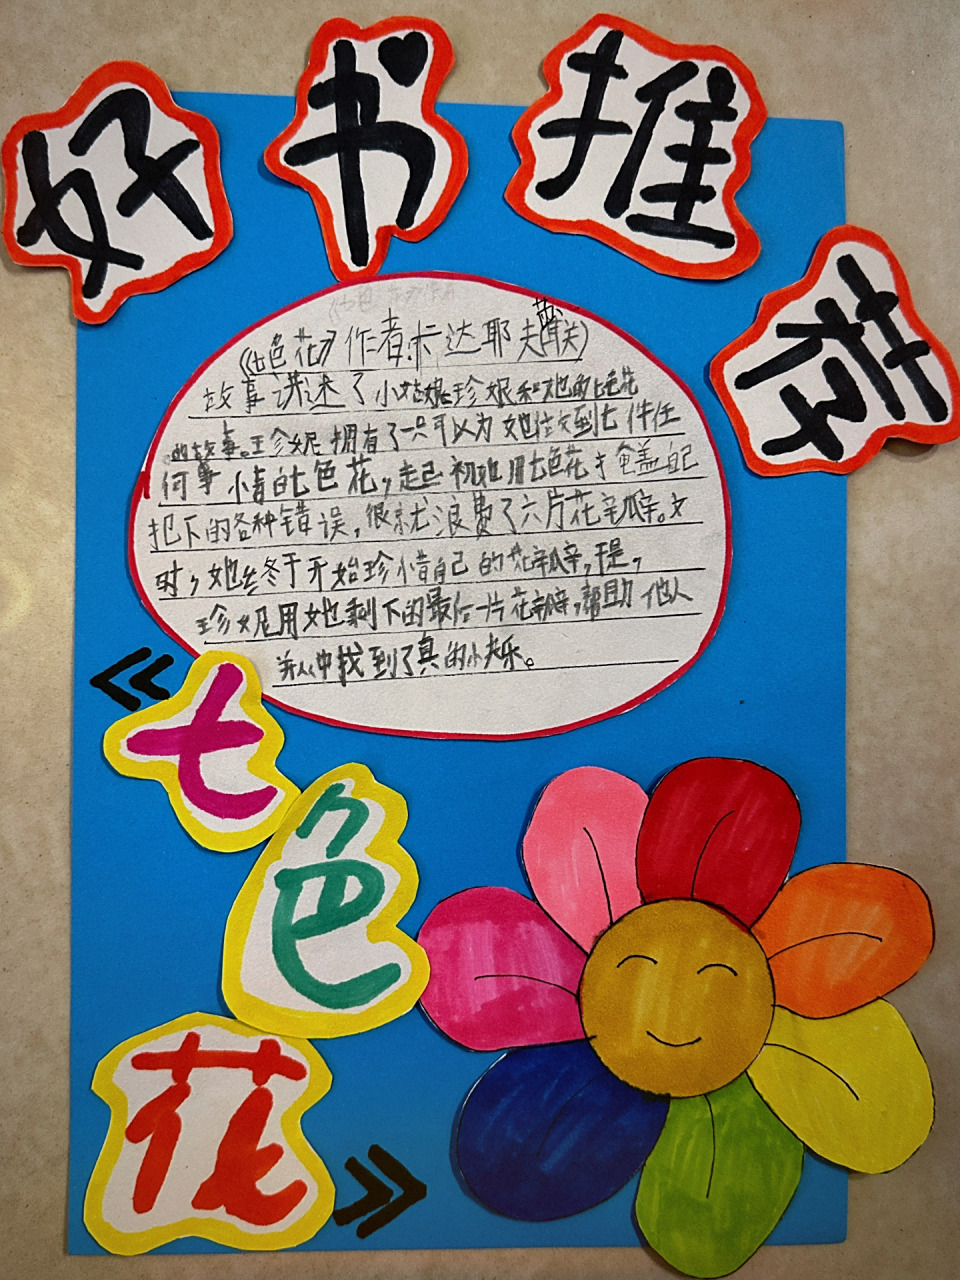 好书推荐
《七色花》作者卡达耶夫(苏联)
故事讲述了小姑娘珍妮和她的七色花
的故事。珍妮拥有了一只可以为她做到七件任
何事情的七色花,起初她用七色花才掩盖自己
犯下的各种错误,很就浪费了六片花瓣。文
时,她终于开始珍惜自己的花瓣,于是,
珍妮用她剩下的最后一片花瓣,帮助他人
并从中找到了真的快乐。
《七色花》